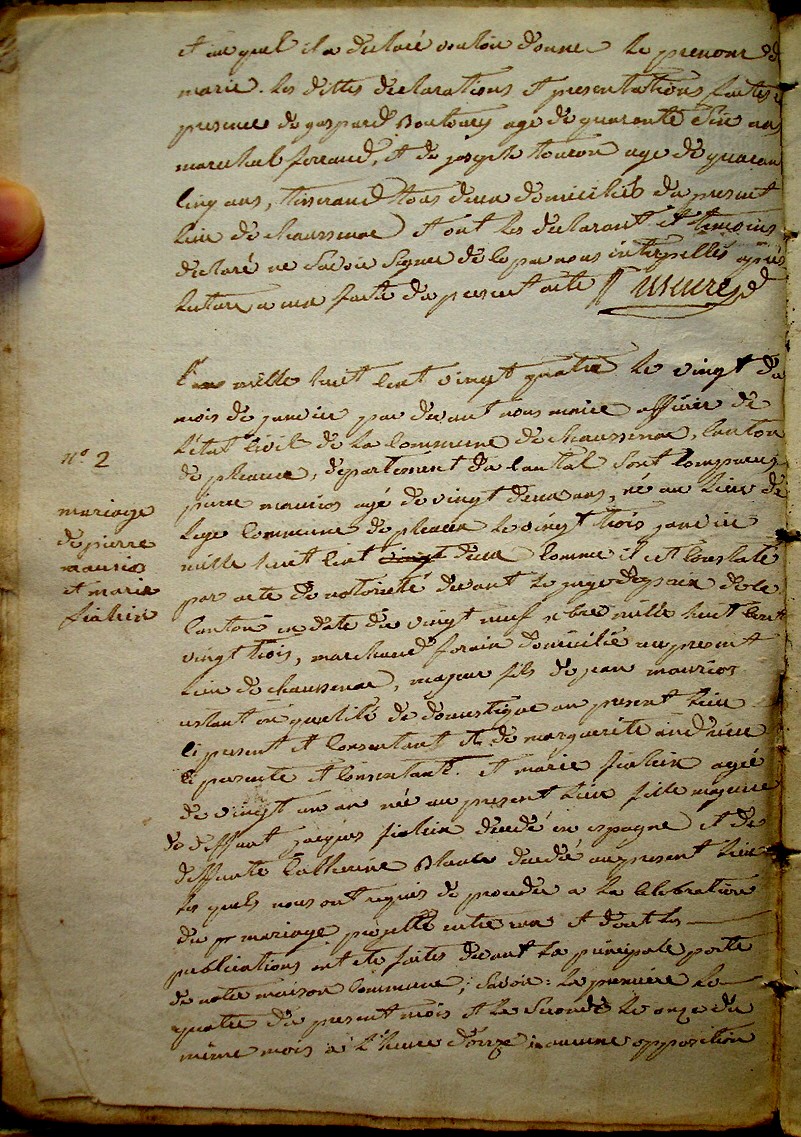 et auquel il a declaré vouloir donner le prenom de
marie. les dittes declarations et presentations faites
presence de gaspard Boutarey age de quarante six ans
marechal ferrand, et de joseph touron age de quaran
cinq ans, tisserand tous deux domiciliés du present
lieu de chaussenac et ont les declarant et temoins
declaré ne savoir signer de le par nous interpellés après
lecture a eux faite du present acte
L'an mille huit cent vingt quatre le vingt du
mois de janvier par devant nous maire officier de
l'état civil de la commune de chaussenac, canton
de pleaux, departement du cantal sont comparus
nº 2
mariage
de pierre
maurios
et marie
fialein
pierre maurios agé de vingt deux ans, né au lieu de
lege commune de pleaux le vingt trois janvier
mille huit cent vingt deux comme il est constaté
par acte de notorieté devant le juge de paix de ce
canton en date du vingt neuf xbre mille huit cent
vingt trois, marchand forain domicilié au present
lieu de chaussenac, majeur fils de jean maurios
estant en qualité de domestique au present lieu
ci present et consentant et de marguerite andrieu
ci presente et consentante. et marie fialein agée
de vingt un an née au present lieu fille majeure
de deffunt jacques fialein décedé en espagne et de
deffunte catherine Blanc decedée au present lieu
les quels nous ont requis de proceder a la celebration
du pr mariage projetté entre eux et dont les
publications ont ete faites devant la principale porte
de notre maison commune; savoir: la premiere le
quatre du present mois et la seconde le onze du
même mois à l'heure d'onze aucune opposition